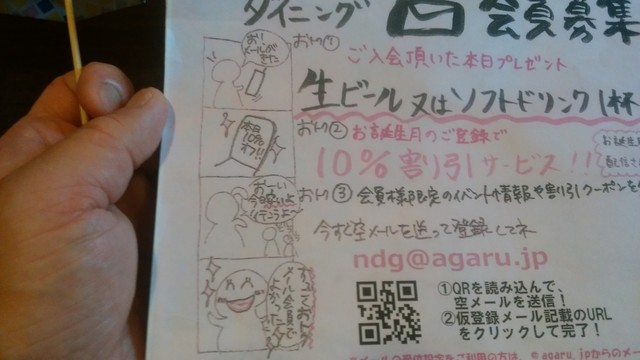 ダイニング 会員募集
おトク①
ご入会頂いた本日プレゼント
生ビール又はソフトドリンク1杯
おトク② お誕生月のご登録で
10%割引サービス!!
お誕生月
おトク③ 会員様限定のイベント情報や割引クーポンを
今すぐ空メールを送って登録してネ
ndg@agaru.jp
①QRを読み込んで、
空メールを送信!
②仮登録メール記載のURL
をクリックして完了!
お!
メールが
きた
本日
10%
オフ!!
おーい
メール会員で
よかった